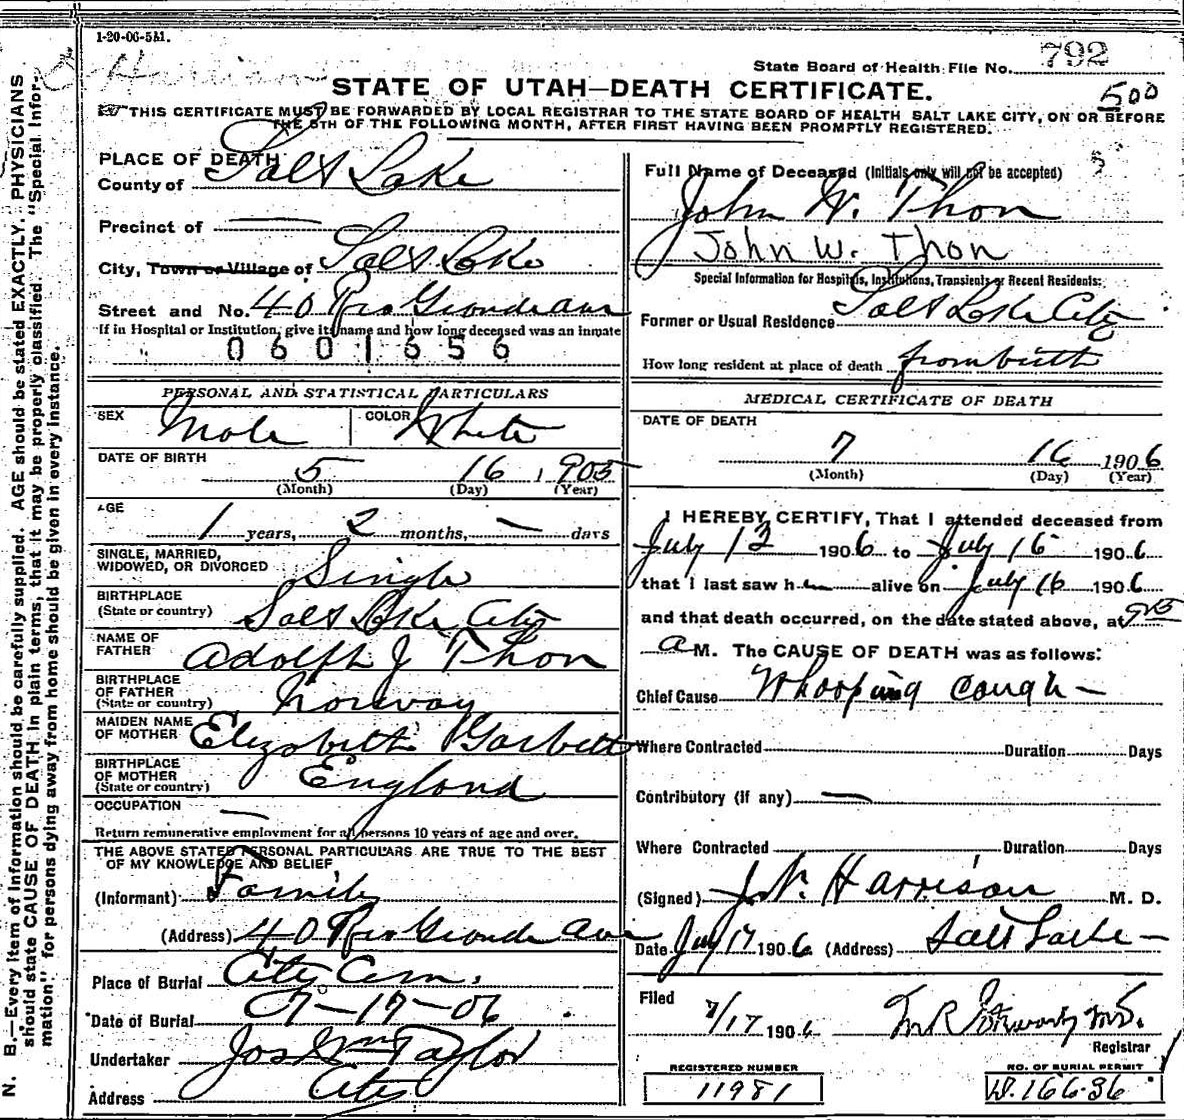 1-20-06-5M.
State Board of Health File No. 792
STATE OF UTAH—DEATH CERTIFICATE.
500
THIS CERTIFICATE MUST BE FORWARDED BY LOCAL REGISTRAR TO THE STATE BOARD OF HEALTH SALT LAKE CITY, ON OR BEFORE
THE 5TH OF THE FOLLOWING MONTH, AFTER FIRST HAVING BEEN PROMPTLY REGISTERED.
PLACE OF DEATH
County of Salt Lake
Precinct of —
City, Town or Village of Salt Lake
Street and No. 40 Rio Grande ave
If in Hospital or Institution, give its name and how long deceased was an inmate
0601656
PERSONAL AND STATISTICAL PARTICULARS
SEX Male COLOR White
DATE OF BIRTH
5 16 1905
(Month) (Day) (Year)
AGE
1 years, 2 months, — days
SINGLE, MARRIED,
WIDOWED, OR DIVORCED Single
BIRTHPLACE
(State or country) Salt Lake City
NAME OF
FATHER Adolph J Thon
BIRTHPLACE
OF FATHER
(State or country) Norway
MAIDEN NAME
OF MOTHER Elizabeth Garbett
BIRTHPLACE
OF MOTHER
(State or country) England
OCCUPATION —
Return remunerative employment for all persons 10 years of age and over.
THE ABOVE STATED PERSONAL PARTICULARS ARE TRUE TO THE BEST
OF MY KNOWLEDGE AND BELIEF
(Informant) Family
(Address) 40 Rio Grande Ave
Place of Burial City Cem.
Date of Burial 7-17-06
Undertaker Jos Wm Taylor
Address City
Full Name of Deceased (Initials only will not be accepted)
John W. Thon
John W. Thon
Special Information for Hospitals, Institutions, Transients or Recent Residents:
Former or Usual Residence Salt Lake City
How long resident at place of death from birth
MEDICAL CERTIFICATE OF DEATH
DATE OF DEATH
7 16 1906
(Month) (Day) (Year)
I HEREBY CERTIFY, That I attended deceased from
July 13 1906 to July 16 1906
that I last saw h alive on July 16 1906
and that death occurred, on the date stated above, at
a M. The CAUSE OF DEATH was as follows:
Chief Cause Whooping Cough —
Where Contracted Duration Days
Contributory (if any) —
Where Contracted Duration Days
(Signed) Harrison M. D.
Date July 17 1906 (Address) Salt Lake —
Filed 7/17 1906
Registrar
REGISTERED NUMBER
11981
NO. OF BURIAL PERMIT
D.16636
N. B.—Every item of information should be carefully supplied. AGE should be stated EXACTLY. PHYSICIANS
should state CAUSE OF DEATH in plain terms, that it may be properly classified. The "Special Infor-
mation" for persons dying away from home should be given in every instance.